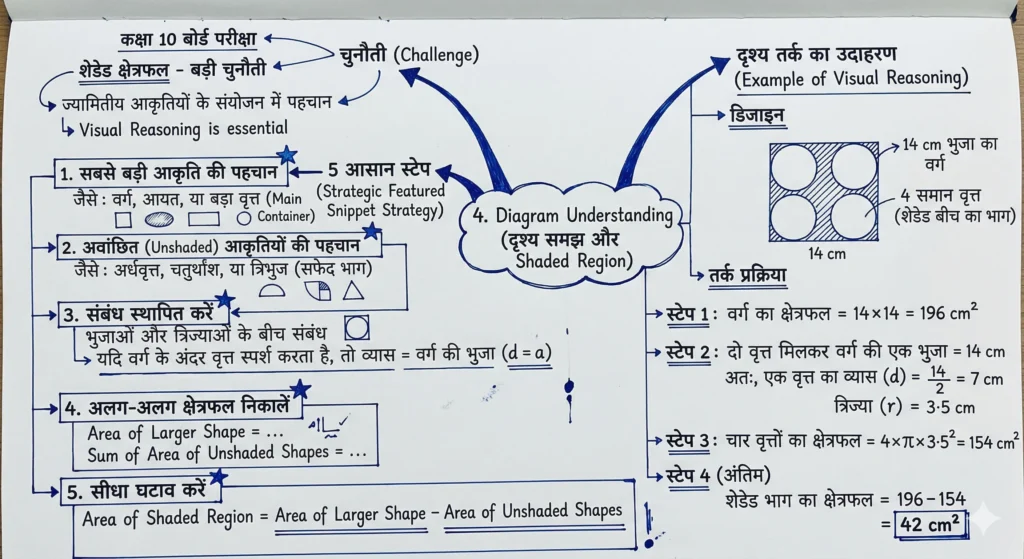 कक्षा 10 बोर्ड परीक्षा
चुनौती (Challenge)
शेडेड क्षेत्रफल – बड़ी चुनौती
ज्यामितीय आकृतियों के संयोजन में पहचान
Visual Reasoning is essential
5 आसान स्टेप
(Strategic Featured
Snippet Strategy)
1. सबसे बड़ी आकृति की पहचान
जैसे : वर्ग, आयत, या बड़ा वृत्त (Main
Container)
2. अवांछित (Unshaded) आकृतियों की पहचान
जैसे : अर्धवृत्त, चतुर्थांश, या त्रिभुज (सफेद भाग)
3. संबंध स्थापित करें
भुजाओं और त्रिज्याओं के बीच संबंध
यदि वर्ग के अंदर वृत्त स्पर्श करता है, तो व्यास = वर्ग की भुजा (d = a)
4. अलग-अलग क्षेत्रफल निकालें
Area of Larger Shape = ...
Sum of Area of Unshaded Shapes = ...
5. सीधा घटाव करें
Area of Shaded Region = Area of Larger Shape – Area of Unshaded Shapes
4. Diagram Understanding
(दृश्य समझ और
Shaded Region)
दृश्य तर्क का उदाहरण
(Example of Visual Reasoning)
डिजाइन
14 cm भुजा का
वर्ग
4 समान वृत्त
(शेडेड बीच का भाग)
14 cm
तर्क प्रक्रिया
स्टेप 1 : वर्ग का क्षेत्रफल = 14×14 = 196 cm²
स्टेप 2 : दो वृत्त मिलकर वर्ग की एक भुजा = 14 cm
अतः, एक वृत्त का व्यास (d) = 14/2 = 7 cm
त्रिज्या (r) = 3·5 cm
स्टेप 3 : चार वृत्तों का क्षेत्रफल = 4×π×3·5² = 154 cm²
स्टेप 4 (अंतिम)
शेडेड भाग का क्षेत्रफल = 196 – 154
= 42 cm²